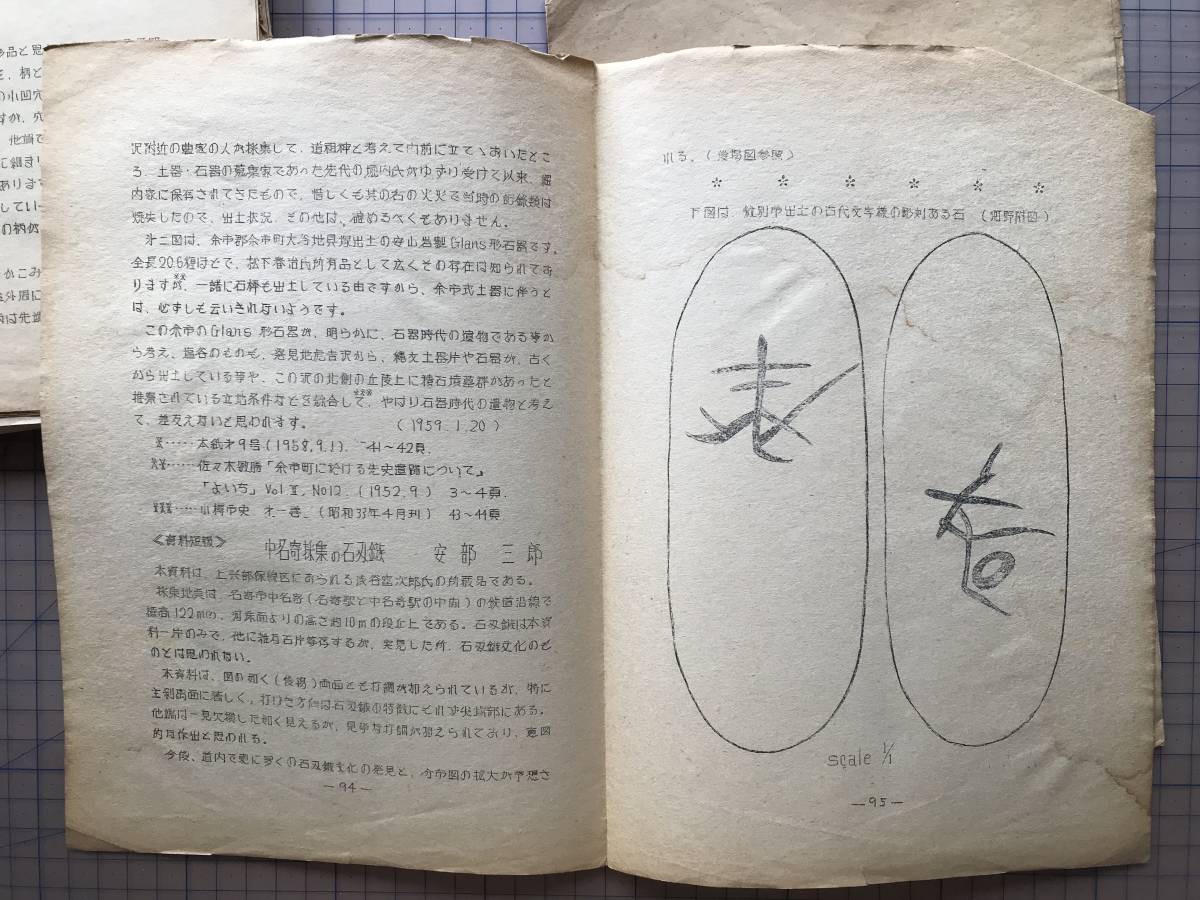 沢附近の農家の人が採集して、道祖神と考えて門前に立てゝおいたとこ
ろ、土器・石器の蒐集家であった先代の堀内氏がゆずり受けて以来、堀
内家に保存されてきたもので、惜しくも其の后の火災で当時の記録類は
焼失したので、出土状況、その他は、確めるべくもありません。
才二図は、余市郡余市町大谷地貝塚出土の安山岩製Glans形石器です。
全長20.6糎ほどで、松下春治氏所有品として広くその存在は知られてお
りますが、※※一諸に石棒も出土している由ですから、余市式土器に伴うと
は、必ずしも云いきれないようです。
この余市のGlans形石器が、明らかに、石器時代の遺物である事か
ら考え、塩谷のものも、発見地危吉沢から、縄文土器片や石器が、古く
から出土している事や、この沢の北側の丘陵上に積石墳墓群があったと
推察されている立地条件などを綜合して、※※※やはり石器時代の遺物と考え
て、差支えないと思われます。 (1959.1.20)
※……本紙才9号(1958.9.1). 41〜42頁.
※※……佐々木敏勝「余市町に於ける先史遺跡について」
「よいち」Vol Ⅱ, No12. (1952.9) 3〜4頁.
※※※……小樽市史 才一巻. (昭和33年4月刊) 43〜44頁.
《資料短報》 中名寄採集の石刃鏃 安部三郎
本資料は、上興部保線区におられる渋谷富次郎氏の所蔵品である。
採集地点は、名寄市中名寄(名寄駅と中名寄駅の中間)の鉄道沿線で
標高122mの、河床面よりの高さ約10mの段丘上である。石刃鏃は本資
料一片のみで、他に雑石石片等存するが、実見した所、石刃鏃文化のも
のとは思われない。
本資料は、図の如く(後掲)両面とも打調が加えられているが、特に
主剥離面に著しく、打けき方作は石刃鏃の特徴にそれ中央端部にある。
他端は一見欠損した如く見えるが、見事な打調が加えられており、意図
的な作出と思われる。
今後、道内で更に多くの石刃鏃文化の発見と、分布図の拡大が予想さ
—94—
れる。(後場図参照)
* * * * * * *
下図は、紋別市出土の古代文字様の彫刻ある石 (河野附図)
scale 1/1
—95—